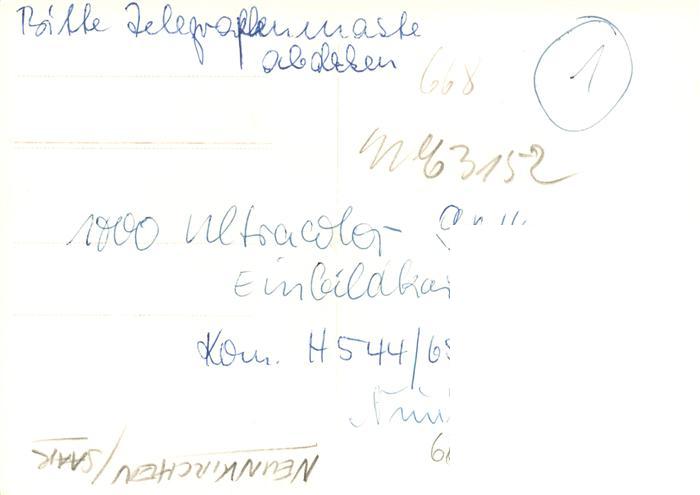 Bitte Telegraphenmaste
abdecken
668
1
63152
1000 Ultracolor-
Einbildkar
Kom. H544/6
NEUNKIRCHEN/SAAR